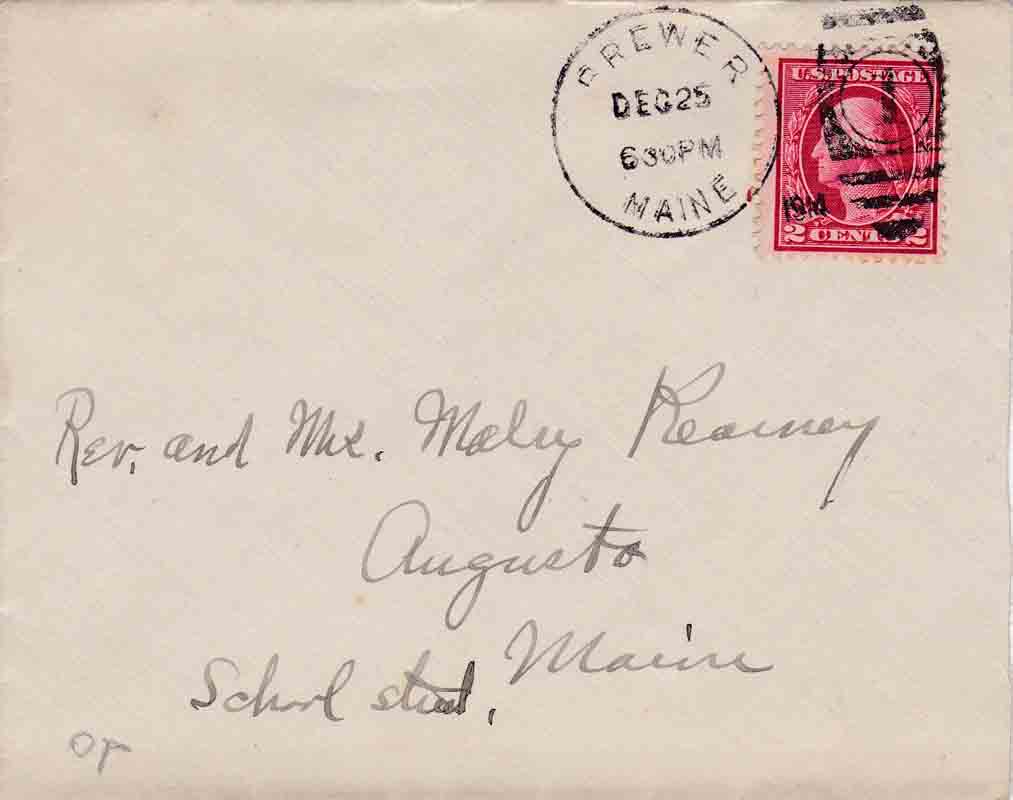 BREWER
DEC 25
630 PM
MAINE
U.S. POSTAGE
1
2 CENTS 2
Rev. and Mrs. Kearney
Augusta
Maine
School street,